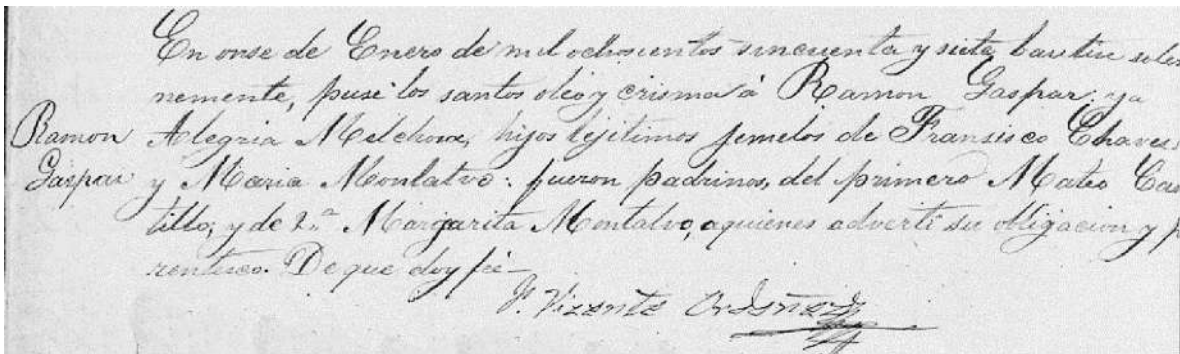 En onse de Enero de mil ochosientos sincuenta y siete bautise solem
nemente, puse los santos oleo y crisma á Ramon Gaspar; ya
Ramon Alegria Melchora, hijos lejitimos jemelos de Fransisco Chaves
Gaspar y Maria Montalvo: fueron padrinos, del primero Mateo Cas
tillo; y de 2.ª Margarita Montalvo, aquienes adverti su obligacion y pa
rentesco. De que doy fé—
Vizente Ordoñez